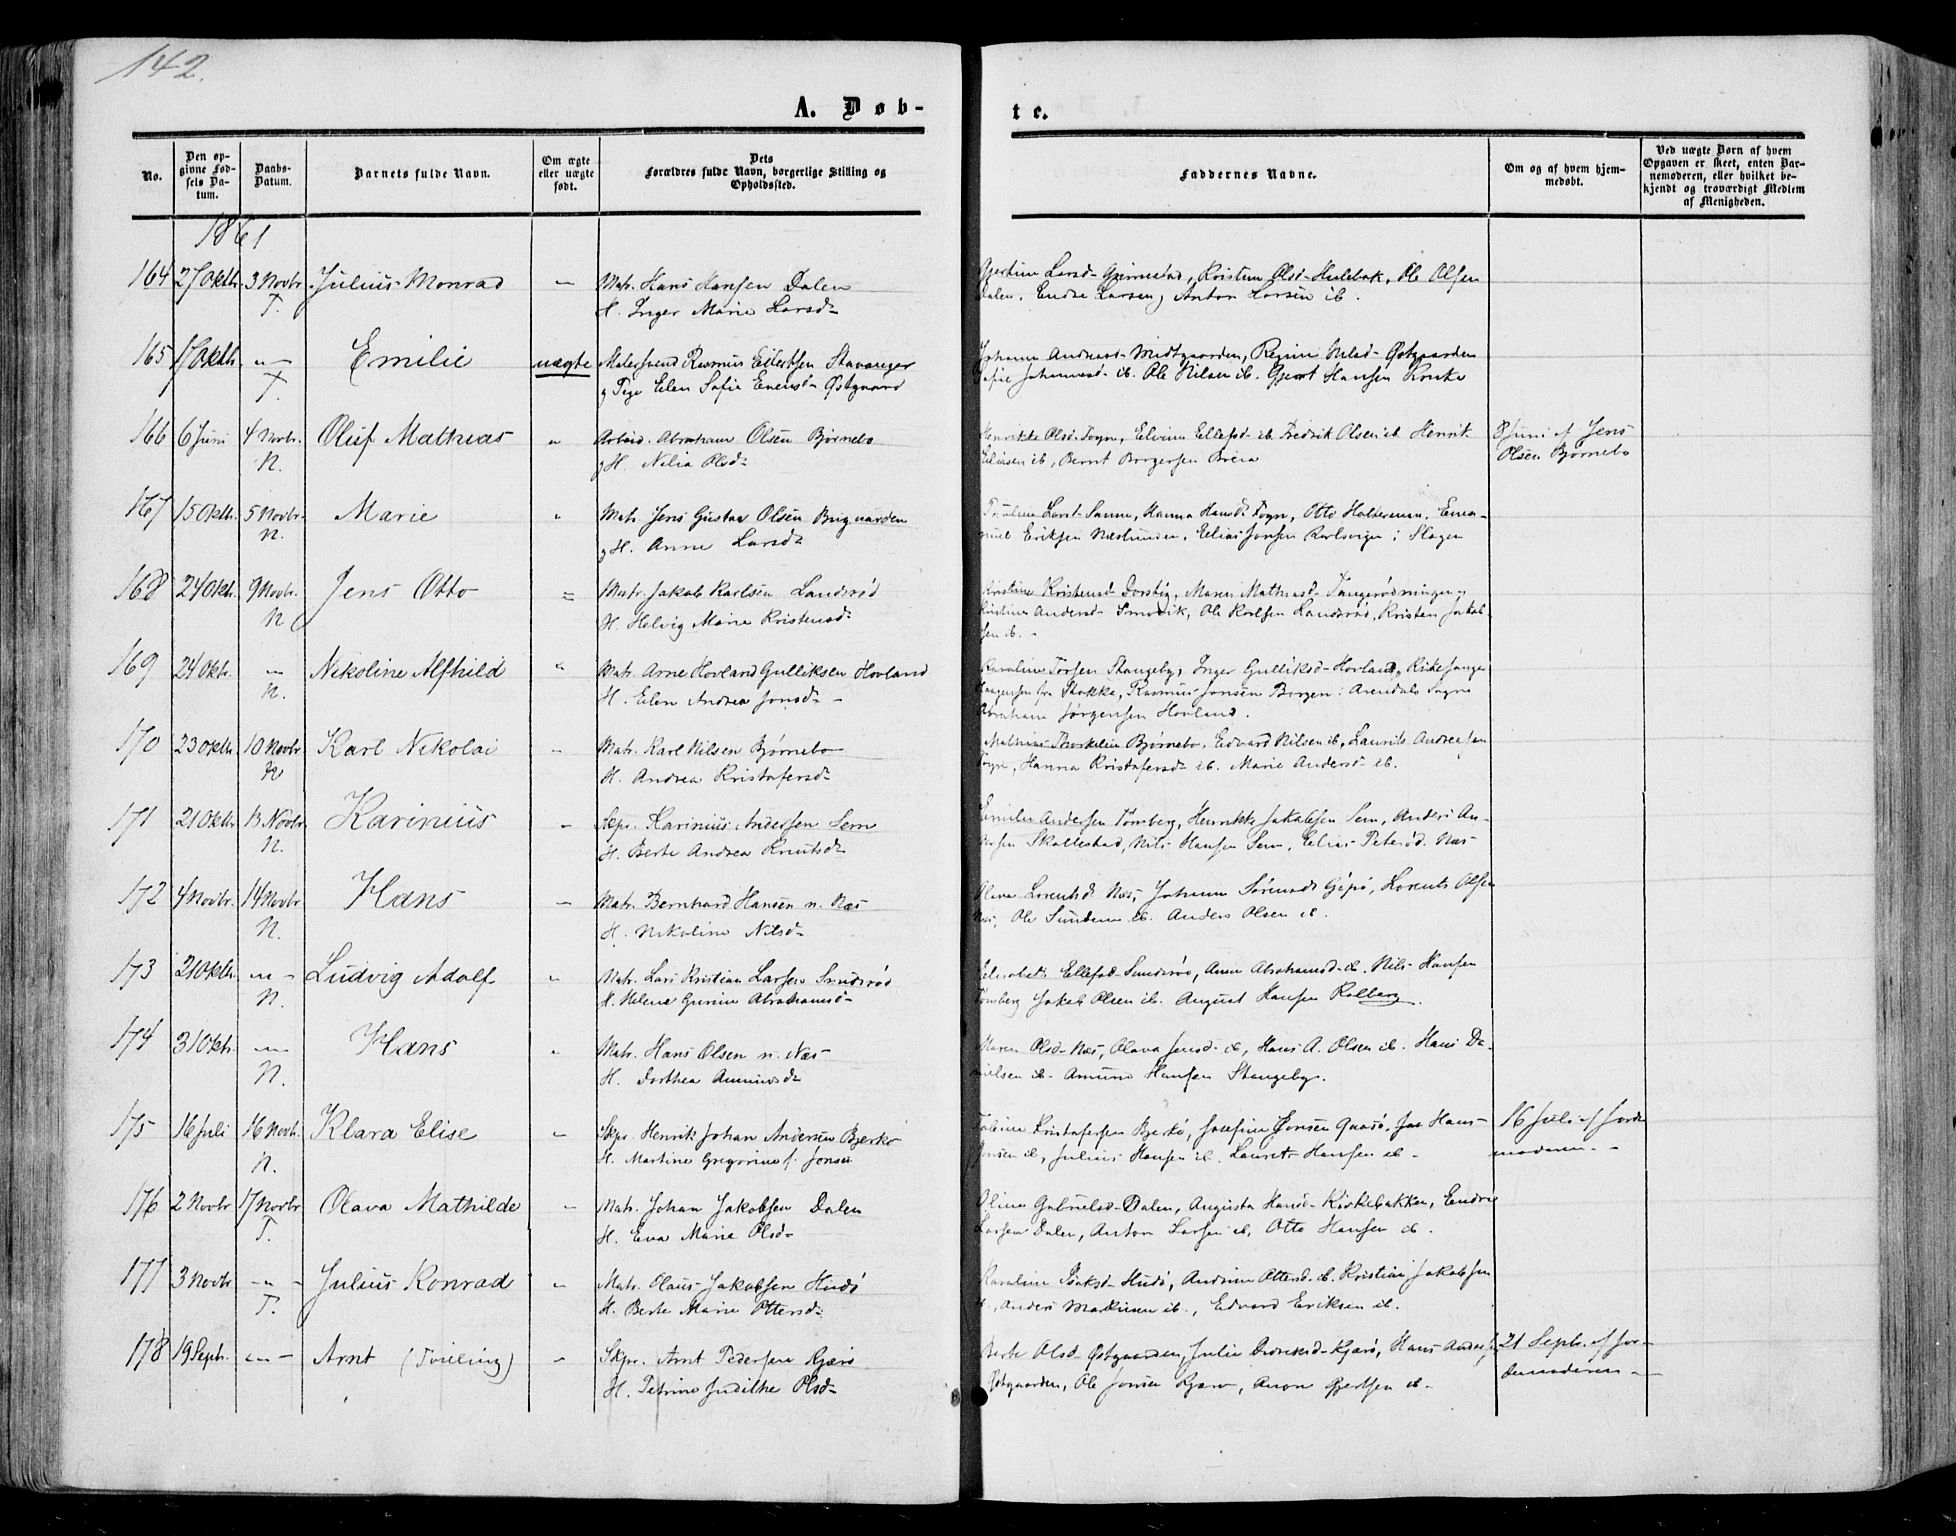 142.
A. Døb-
te.
No.
Den op-
givne Fød-
sels Da-
tum.
Daabs-
Datum.
Barnets fulde Navn.
Om ægte
eller uægte
født.
Dets
Forældres fulde Navn, borgerlige Stilling og
Opholdssted.
Faddernes Navne.
Om og af hvem hjem-
medøbt.
Ved uægte Børn af hvem
Opgaven er skeet, enten Bar-
nemoderen, eller hvilket be-
kjendt og troværdigt Medlem
af Menigheden.
1861
164 27 Oktb. 3 Novbr. Julius Monrad " Matr. Hans Hansen Dalen
T. H. Inger Marie Larsd-
Larsd- Kristine Olsd- Ole Olsen
Dalen, Endre Larsen, Anton Larsen ib.
165 17 Oktb. " - Emilie uægte Malersvend Rasmus Eilertsen Stavanger
T. g Pige Elen Sofie Evensd- Østgaard
Johanne Andreasd- Midtgaarden, Regine Nilsd- Østgaarden
Sofie Johannesd- ib. Ole Nilsen ib. Gjert Hansen
166 6 Juni 4 Novbr. Oluf Mathias " Arbeid. Abraham Olsen Bjørnebo
N. g H. Nilia Olsd-
Henrikke Olsd- Togn, Elvine Ellefsd- ib. Fredrik Olsen ib. Henrik
Eliasen ib, Bernt Borgersen
8 Juni af Jens
Olsen Bjørnebo
167 15 Oktb. 5 Novbr. Marie " Matr. Jens Gustav Olsen
N. g H. Anne Larsd-
Hanna Hansd- Togn, Otto
Eriksen Elias Jonsen i Slagen
168 24 Oktb. 9 Novbr. Jens Otto = Matr. Jakob Karlsen Landsrød
N H. Helvig Marie Kristensd-
Kristine Kristensd- Maren Mathiasd-
Kristine Andersd- Smørvik, Ole Karlsen Landsrød, Kristen Jakob-
sen ib. -
169 24 Oktb. " Nikoline Alfhild " Matr. Arne Hovland Gulliksen Hovland
N. H. Elen Andrea Jonsd- -
Karoline Torsen Stangeby, Inger Gulliksd- Hovland,
fra Stokke, Rasmus Jonsen Borgen i Arendals Sogn
Abraham Jørgensen Hovland.
170 23 Oktb. 10 Novbr Karl Nikolai " Matr. Karl Nilsen Bjørnebo
N H. Andrea Kristofersd-
Bjørnebo, Edvard Nilsen ib, Laurits Andreasen
Togn, Hanna Kristofersd- ib. Marie Andersd- ib.
171 21 Oktb 13 Novbr Karinius " Skpr. Karinius Andersen Sem
N. H. Berte Andrea Knutsd-
Emilie Andersen Tønsberg, Henrikke Jakobsen Sem, Anders An-
dersen Skallestad, Nils Hansen Sem, Elias Næs-
172 4 Novbr. 14 Novbr Hans " Matr. Bernhard Hansen n. Næs
N. H. Nikoline Nilsd-
Olava Lorentsd- Næs, Johanne Sørensd- Gipø, Lorents Olsen
Næs, Ole ib. Anders Olsen ib.
173 21 Oktb " - Ludvig Adolf " Matr. Lars Kristian Larsen Sundsrød
N. H. Helene Gurine Abrahamsd-
Elisabeth Ellefsd- Sundsrød, Anne Abrahamsd- ib. Nils Hansen
Tønsberg Jakob Olsen ib. August Hansen Rolberg.
174 31 Oktb. " Hans " Matr. Hans Olsen n. Næs
N. H. Dorthea Amundsd-
Maren Olsd- Næs, Olava Jensd- ib, Hans A. Olsen ib. Hans Da-
nielsen ib. Amund Hansen Stangeby.
175 16 Juli 16 Novb. Klara Elise " Skpr. Henrik Johan Andersen Bjerkø
N. H. Martine Gregorine f. Jonsen
Kristofersen Bjerkø, Josefine Jonsen Hans
Jonsen ib, Julius Hansen ib. Laurits Hansen ib -
16 Juli af Jorde
moderen. -
176 2 Novbr 17 Novbr Olava Mathilde " Matr. Johan Jakobsen Dalen
T. H. Eva Marie Olsd-
Oline Gabrielsd- Dalen, Augusta Hansd- Kirkebakken, Endre
Larsen Dalen, Anton Larsen ib, Otto Hansen ib.
177 3 Novbr " - Julius Konrad " Matr. Olaus Jakobsen Hudø
T. H. Berte Marie Ottersd-
Karoline Isaksd- Hudø, Andrine Ottersd- ib. Kristian Jakobsen
ib, Anders ib., Edvard Eriksen ib.
178 19 Septb. " - Arnt (Tvilling) " Skpr. Arnt Pedersen Kjærø
H. Petrine Judithe Olsd-
Berte Olsd- Østgaarden, Julie Kjærø, Hans
Østgaarden, Ole Jonsen Kjærø, Anon Gjertsen ib -
21 Septb. af Jor-
demoderen -